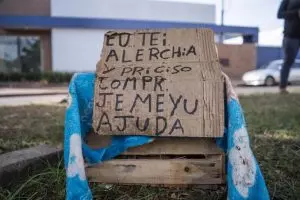 EU TEI
ALERCHIA
Y PRICISO
COMPR.
JEMEYU
AJUDA